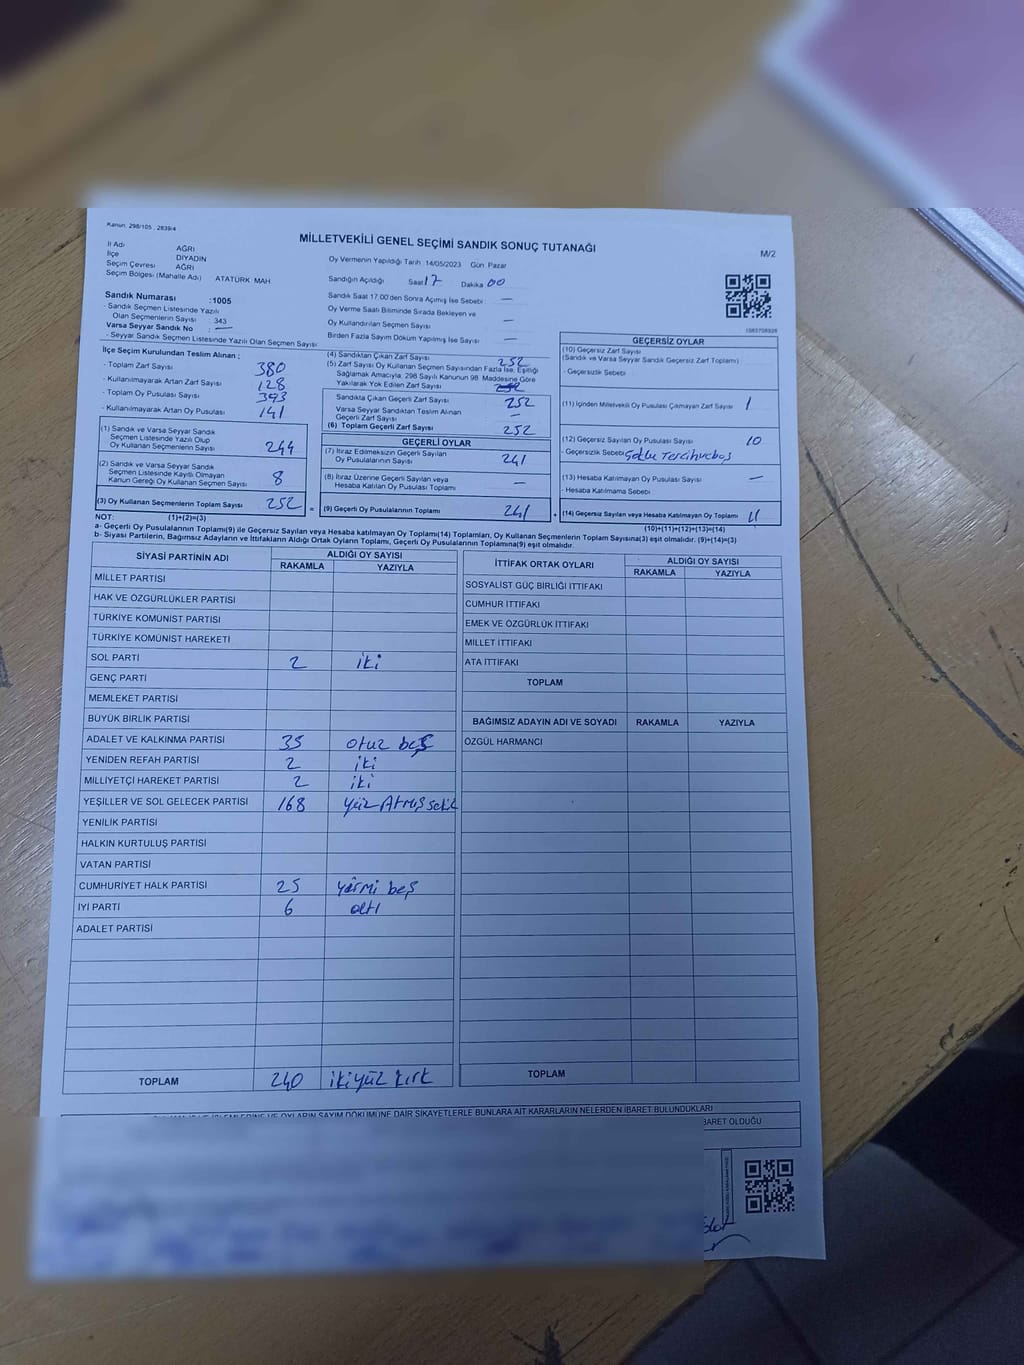 Kanun: 298/105 , 2839/4
MİLLETVEKİLİ GENEL SEÇİMİ SANDIK SONUÇ TUTANAĞI
M/2
İl Adı AĞRI
İlçe DİYADİN
Seçim Çevresi AĞRI
Seçim Bölgesi (Mahalle Adı) ATATÜRK MAH
Oy Vermenin Yapıldığı Tarih :14/05/2023 Gün: Pazar
Sandığın Açıldığı Saat 17 Dakika 00
Sandık Saat 17.00'den Sonra Açılmış İse Sebebi : —
Oy Verme Saati Bitiminde Sırada Bekleyen ve
Oy Kullandırılan Seçmen Sayısı —
Birden Fazla Sayım Döküm Yapılmış İse Sayısı : —
Sandık Numarası :1005
- Sandık Seçmen Listesinde Yazılı
Olan Seçmenlerin Sayısı 343
Varsa Seyyar Sandık No : —
- Seyyar Sandık Seçmen Listesinde Yazılı Olan Seçmen Sayısı
İlçe Seçim Kurulundan Teslim Alınan ;
- Toplam Zarf Sayısı 380
- Kullanılmayarak Artan Zarf Sayısı 128
- Toplam Oy Pusulası Sayısı 393
- Kullanılmayarak Artan Oy Pusulası 141
(1) Sandık ve Varsa Seyyar Sandık
Seçmen Listesinde Yazılı Olup
Oy Kullanan Seçmenlerin Sayısı 244
(2) Sandık ve Varsa Seyyar Sandık
Seçmen Listesinde Kayıtlı Olmayan
Kanun Gereği Oy Kullanan Seçmen Sayısı 8
(3) Oy Kullanan Seçmenlerin Toplam Sayısı 252
(4) Sandıktan Çıkan Zarf Sayısı 252
(5) Zarf Sayısı Oy Kullanan Seçmen Sayısından Fazla İse, Eşitliği
Sağlamak Amacıyla, 298 Sayılı Kanunun 98. Maddesine Göre
Yakılarak Yok Edilen Zarf Sayısı
Sandıkta Çıkan Geçerli Zarf Sayısı 252
Varsa Seyyar Sandıktan Teslim Alınan
Geçerli Zarf Sayısı —
(6) Toplam Geçerli Zarf Sayısı 252
GEÇERLİ OYLAR
(7) İtiraz Edilmeksizin Geçerli Sayılan
Oy Pusulalarının Sayısı 241
(8) İtiraz Üzerine Geçerli Sayılan veya
Hesaba Katılan Oy Pusulası Toplamı —
= (9) Geçerli Oy Pusulalarının Toplamı 241
GEÇERSİZ OYLAR
(10) Geçersiz Zarf Sayısı
(Sandık ve Varsa Seyyar Sandık Geçersiz Zarf Toplamı)
- Geçersizlik Sebebi
(11) İçinden Milletvekili Oy Pusulası Çıkmayan Zarf Sayısı 1
(12) Geçersiz Sayılan Oy Pusulası Sayısı 10
- Geçersizlik Sebebi
(13) Hesaba Katılmayan Oy Pusulası Sayısı —
- Hesaba Katılmama Sebebi
+ (14) Geçersiz Sayılan veya Hesaba Katılmayan Oy Toplamı 11
NOT: (1)+(2)=(3) (10)+(11)+(12)+(13)=(14)
a- Geçerli Oy Pusulalarının Toplamı(9) ile Geçersiz Sayılan veya Hesaba katılmayan Oy Toplamı(14) Toplamları, Oy Kullanan Seçmenlerin Toplam Sayısına(3) eşit olmalıdır. (9)+(14)=(3)
b- Siyasi Partilerin, Bağımsız Adayların ve İttifakların Aldığı Ortak Oyların Toplamı, Geçerli Oy Pusulalarının Toplamına(9) eşit olmalıdır.
SİYASİ PARTİNİN ADI ALDIĞI OY SAYISI
RAKAMLA YAZIYLA
MİLLET PARTİSİ
HAK VE ÖZGÜRLÜKLER PARTİSİ
TÜRKİYE KOMÜNİST PARTİSİ
TÜRKİYE KOMÜNİST HAREKETİ
SOL PARTİ 2 iki
GENÇ PARTİ
MEMLEKET PARTİSİ
BÜYÜK BİRLİK PARTİSİ
ADALET VE KALKINMA PARTİSİ 35 otuz beş
YENİDEN REFAH PARTİSİ 2 iki
MİLLİYETÇİ HAREKET PARTİSİ 2 iki
YEŞİLLER VE SOL GELECEK PARTİSİ 168 yüz Atmış sekiz
YENİLİK PARTİSİ
HALKIN KURTULUŞ PARTİSİ
VATAN PARTİSİ
CUMHURİYET HALK PARTİSİ 25 yirmi beş
İYİ PARTİ 6 altı
ADALET PARTİSİ
TOPLAM 240 ikiyüz kırk
İTTİFAK ORTAK OYLARI ALDIĞI OY SAYISI
RAKAMLA YAZIYLA
SOSYALİST GÜÇ BİRLİĞİ İTTİFAKI
CUMHUR İTTİFAKI
EMEK VE ÖZGÜRLÜK İTTİFAKI
MİLLET İTTİFAKI
ATA İTTİFAKI
TOPLAM
BAĞIMSIZ ADAYIN ADI VE SOYADI RAKAMLA YAZIYLA
ÖZGÜL HARMANCI
TOPLAM
İŞLEMLERİNE VE OYLARIN SAYIM DÖKÜMÜNE DAİR ŞİKAYETLERLE BUNLARA AİT KARARLARIN NELERDEN İBARET BULUNDUKLARI
BARET OLDUĞU